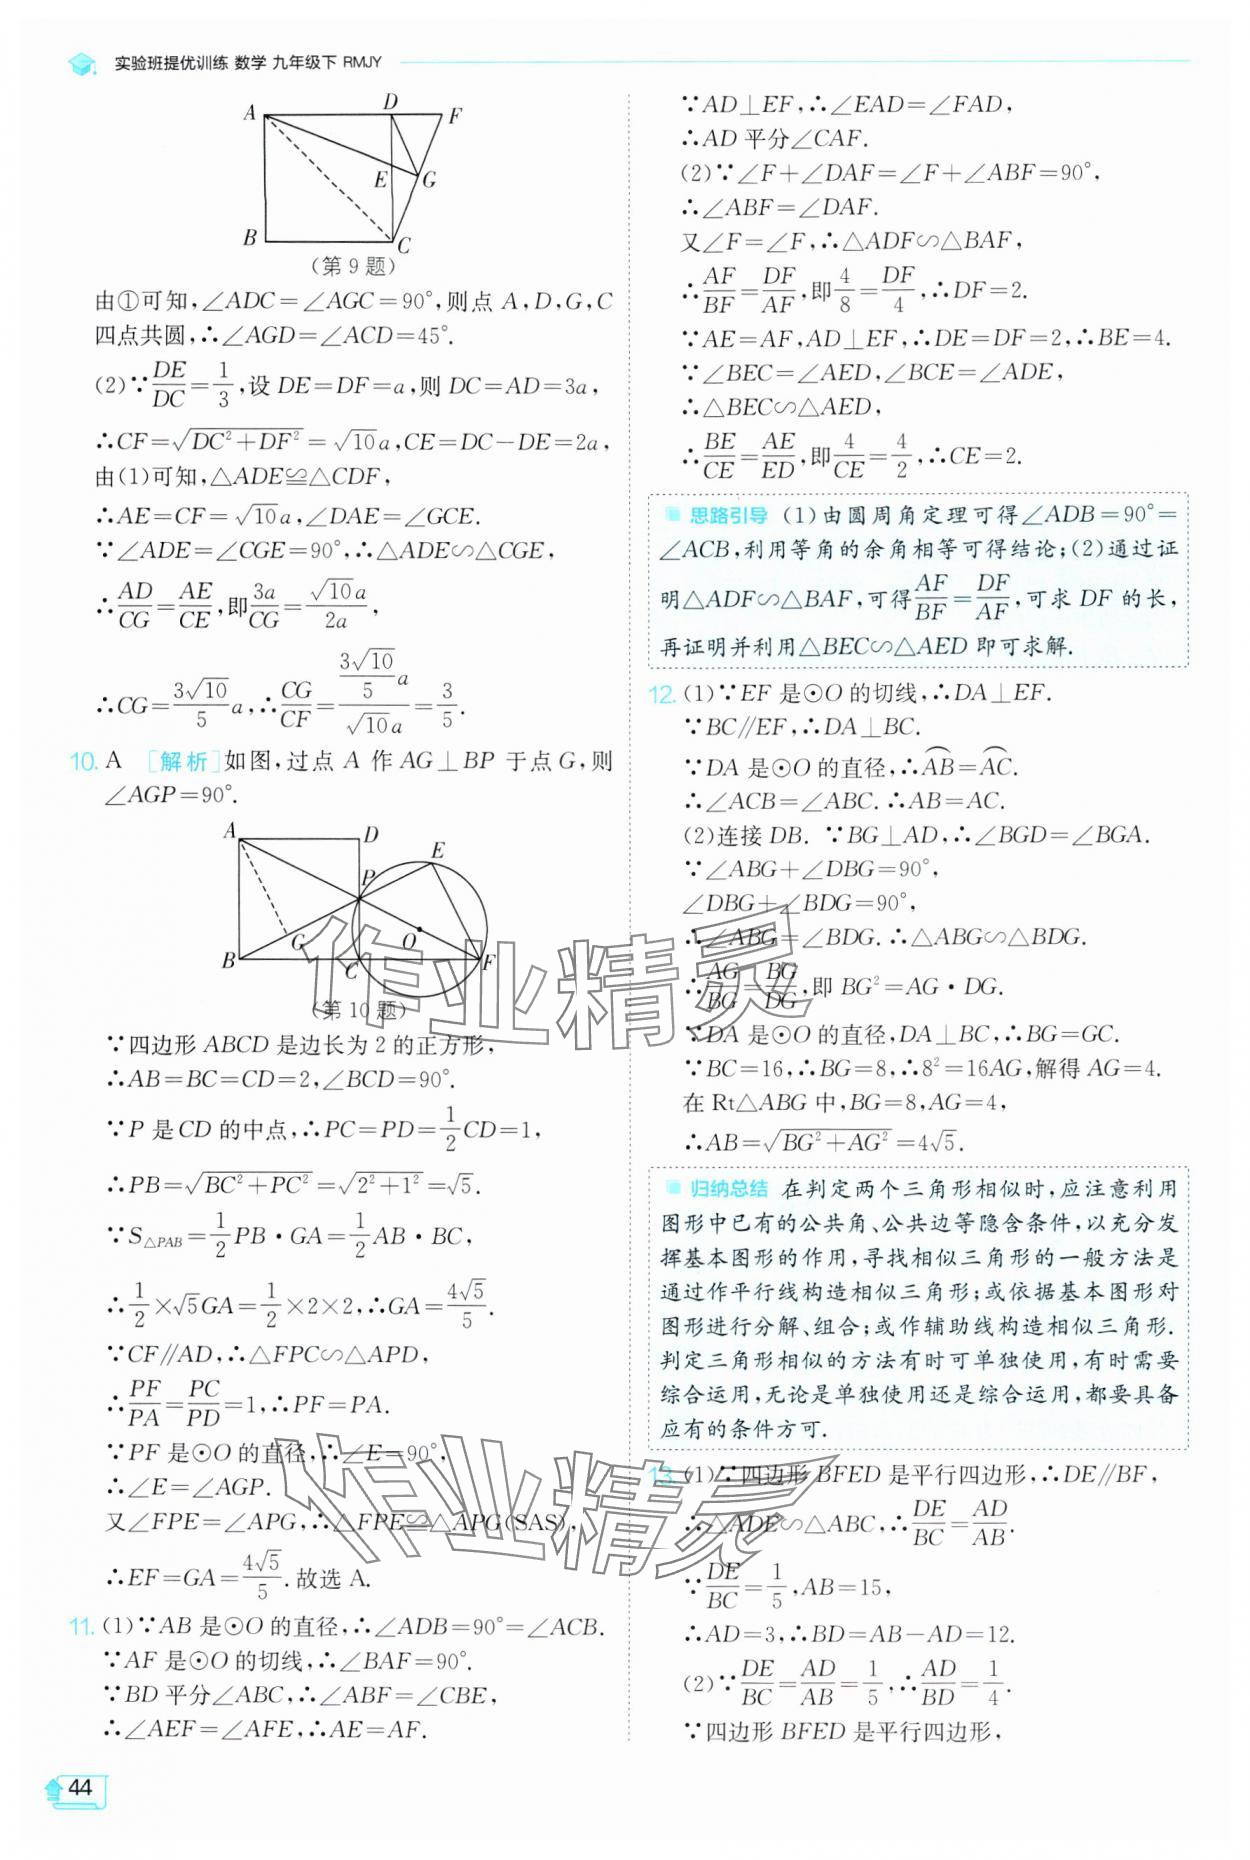 实验班提优训练 数学 九年级下 RMJY
A D F
E G
B C
(第9题)
由①可知,∠ADC=∠AGC=90°,则点A,D,G,C
四点共圆,∴∠AGD=∠ACD=45°.
(2)∵DE/DC=1/3,设DE=DF=a,则DC=AD=3a,
∴CF=√(DC²+DF²)=√10a,CE=DC-DE=2a,
由(1)可知,△ADE≌△CDF,
∴AE=CF=√10a,∠DAE=∠GCE.
∵∠ADE=∠CGE=90°,∴△ADE∽△CGE,
∴AD/CG=AE/CE,即3a/CG=√10a/2a,
∴CG=3√10/5 a,∴CG/CF=(3√10/5 a)/(√10a)=3/5.
10. A [解析]如图,过点A作AG⊥BP于点G,则
∠AGP=90°.
A D E
P
G O
B C F
(第10题)
∵四边形ABCD是边长为2的正方形,
∴AB=BC=CD=2,∠BCD=90°.
∵P是CD的中点,∴PC=PD=1/2CD=1,
∴PB=√(BC²+PC²)=√(2²+1²)=√5.
∵S△PAB=1/2PB·GA=1/2AB·BC,
∴1/2×√5GA=1/2×2×2,∴GA=4√5/5.
∵CF∥AD,∴△FPC∽△APD,
∴PF/PA=PC/PD=1,∴PF=PA.
∵PF是⊙O的直径,∴∠E=90°,
∴∠E=∠AGP.
又∠FPE=∠APG,∴△FPE≌△APG(SAS),
∴EF=GA=4√5/5.故选A.
11. (1)∵AB是⊙O的直径,∴∠ADB=90°=∠ACB.
∵AF是⊙O的切线,∴∠BAF=90°.
∵BD平分∠ABC,∴∠ABF=∠CBE,
∴∠AEF=∠AFE,∴AE=AF.
44
∵AD⊥EF,∴∠EAD=∠FAD,
∴AD平分∠CAF.
(2)∵∠F+∠DAF=∠F+∠ABF=90°,
∴∠ABF=∠DAF.
又∠F=∠F,∴△ADF∽△BAF,
∴AF/BF=DF/AF,即4/8=DF/4,∴DF=2.
∵AE=AF,AD⊥EF,∴DE=DF=2,∴BE=4.
∵∠BEC=∠AED,∠BCE=∠ADE,
∴△BEC∽△AED,
∴BE/CE=AE/ED,即4/CE=4/2,∴CE=2.
思路引导 (1)由圆周角定理可得∠ADB=90°=
∠ACB,利用等角的余角相等可得结论;(2)通过证
明△ADF∽△BAF,可得AF/BF=DF/AF,可求DF的长,
再证明并利用△BEC∽△AED即可求解.
12. (1)∵EF是⊙O的切线,∴DA⊥EF.
∵BC∥EF,∴DA⊥BC.
∵DA是⊙O的直径,∴A͡B=A͡C.
∴∠ACB=∠ABC.∴AB=AC.
(2)连接DB. ∵BG⊥AD,∴∠BGD=∠BGA.
∵∠ABG+∠DBG=90°,
∠DBG+∠BDG=90°,
∴∠ABG=∠BDG.∴△ABG∽△BDG.
∴AG/BG=BG/DG,即BG²=AG·DG.
∵DA是⊙O的直径,DA⊥BC,∴BG=GC.
∵BC=16,∴BG=8,∴8²=16AG,解得AG=4.
在Rt△ABG中,BG=8,AG=4,
∴AB=√(BG²+AG²)=4√5.
归纳总结 在判定两个三角形相似时,应注意利用
图形中已有的公共角、公共边等隐含条件,以充分发
挥基本图形的作用,寻找相似三角形的一般方法是
通过作平行线构造相似三角形;或依据基本图形对
图形进行分解、组合;或作辅助线构造相似三角形.
判定三角形相似的方法有时可单独使用,有时需要
综合运用,无论是单独使用还是综合运用,都要具备
应有的条件方可.
13. (1)∵四边形BFED是平行四边形,∴DE∥BF,
∴△ADE∽△ABC,∴DE/BC=AD/AB.
∵DE/BC=1/5,AB=15,
∴AD=3,∴BD=AB-AD=12.
(2)∵DE/BC=AD/AB=1/5,∴AD/BD=1/4.
∵四边形BFED是平行四边形,
作业精灵
作业精灵